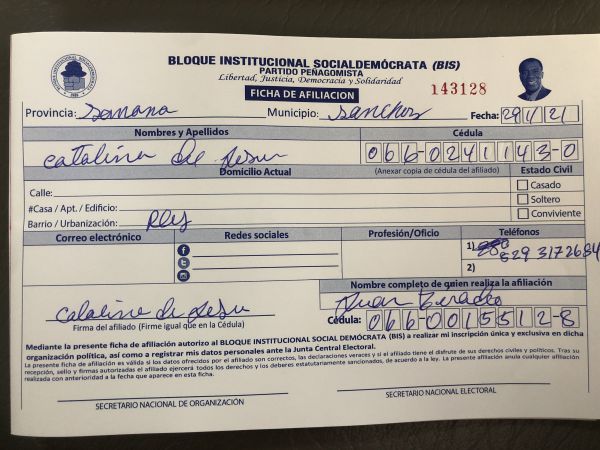 BLOQUE INSTITUCIONAL SOCIALDEMÓCRATA (BIS)
PARTIDO PEÑAGOMISTA
Libertad, Justicia, Democracia y Solidaridad
FICHA DE AFILIACION
143128
Provincia: Samana Municipio: Sanchez Fecha: 29/1/21
Nombres y Apellidos Cédula
Catalina de Jesu 066-0241143-0
Domicilio Actual (Anexar copia de cédula del afiliado) Estado Civil
Calle: Casado
#Casa / Apt. / Edificio: Soltero
Barrio / Urbanización: Conviviente
Correo electrónico Redes sociales Profesión/Oficio Teléfonos
1) 829 3172684
2)
Nombre completo de quien realiza la afiliación
Catalina de Jesu Juan
Firma del afiliado (Firme igual que en la Cédula) Cédula: 066-0015512-8
Mediante la presente ficha de afiliación autorizo al BLOQUE INSTITUCIONAL SOCIAL DEMÓCRATA (BIS) a realizar mi inscripción única y exclusiva en dicha
organización política, así como a registrar mis datos personales ante la Junta Central Electoral.
La presente ficha de afiliación es válida si los datos ofrecidos por el afiliado son correctos, las declaraciones veraces y si el afiliado tiene el disfrute de sus derechos civiles y políticos. Tras su
recepción, sello y firmas autorizadas el afiliado ejercerá todos los derechos y los deberes estatutariamente sancionados, de acuerdo a la ley. La presente afiliación anula cualquier afiliación
realizada con anterioridad a la fecha que aparece en esta ficha.
SECRETARIO NACIONAL DE ORGANIZACIÓN SECRETARIO NACIONAL ELECTORAL